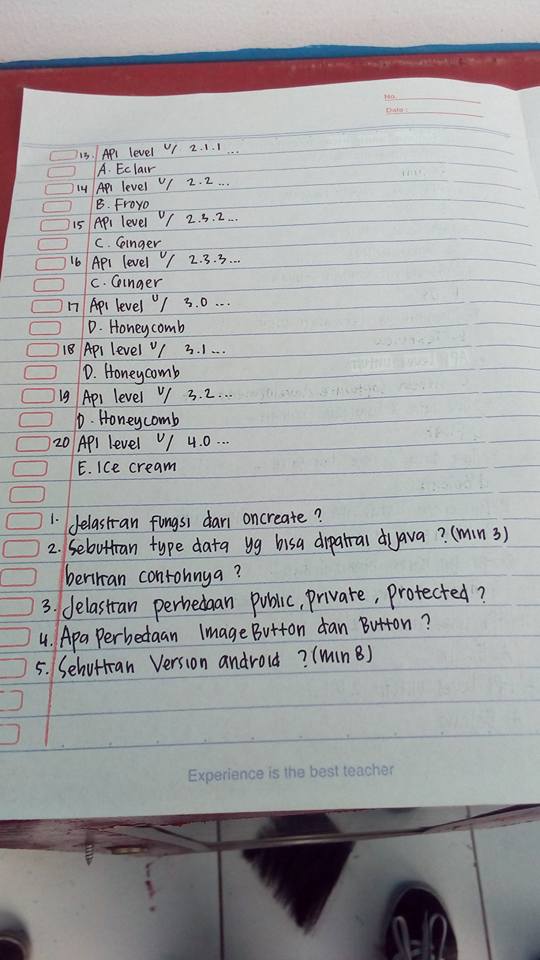 No.
Date :
13. API level U/ 2.1.1 ...
A. Eclair
14 API level U/ 2.2 ...
B. Froyo
15 API level U/ 2.3.2...
C. Ginger
16 API level U/ 2.3.3...
C. Ginger
17 API level U/ 3.0 ...
D. Honeycomb
18 API level U/ 3.1 ...
D. Honeycomb
19 API level U/ 3.2 ...
D. Honeycomb
20 API level U/ 4.0 ...
E. Ice cream
1. Jelaskan fungsi dari oncreate ?
2. Sebutkan type data yg bisa dipakai dijava ? (min 3)
berikan contohnya ?
3. Jelaskan perbedaan public, private, protected ?
4. Apa perbedaan Image Button dan Button ?
5. Sebutkan Version android ? (min 8)
Experience is the best teacher